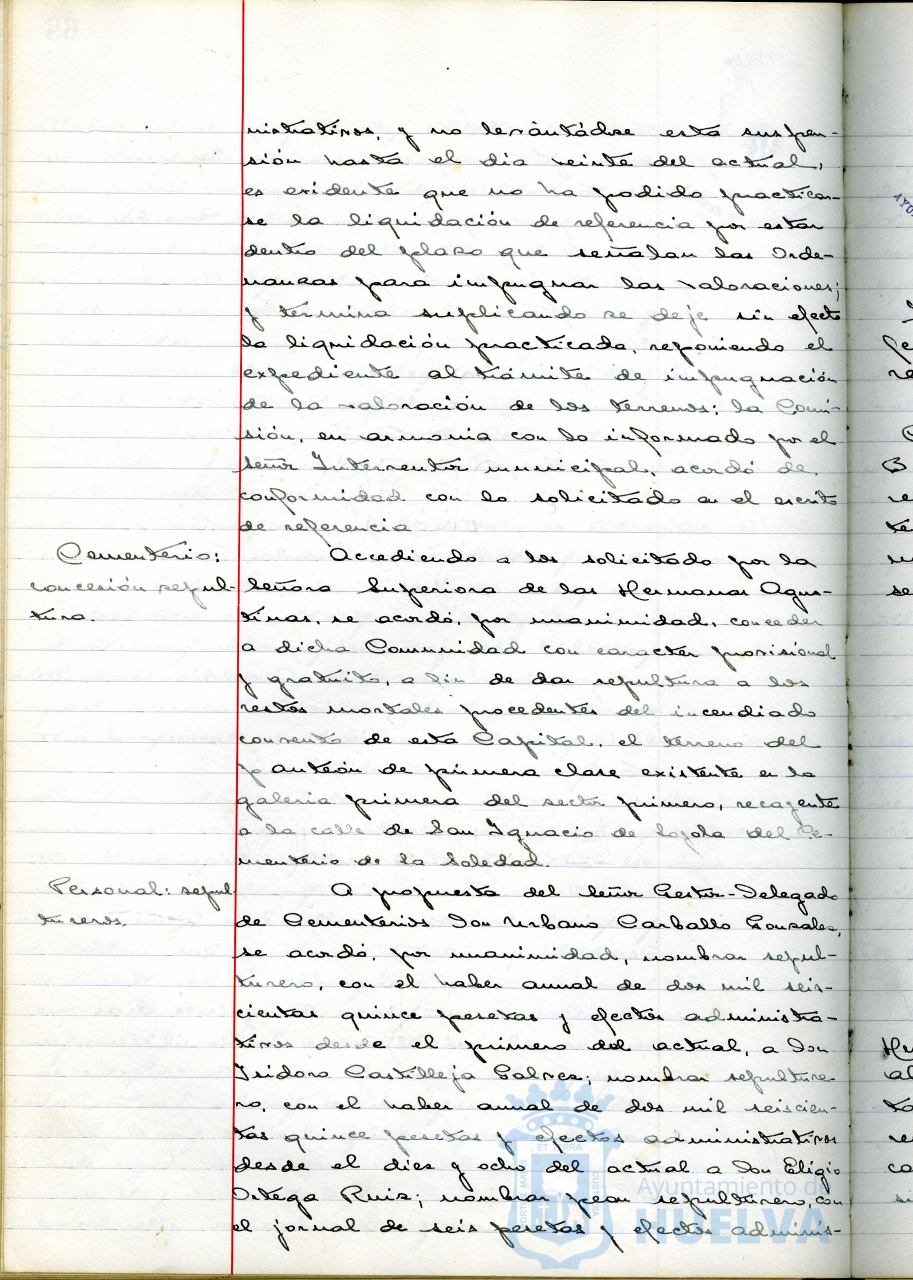 nistrativos, y no levàntádose esta suspen-
sión hasta el dia veinte del actual,
es evidente que no ha podido practicar-
se la liquidación de referencia por estar
dentro del plazo que señalan las Orde-
nanzas para impugnar las valoraciones;
y termina suplicando se deje sin efecto
la liquidación practicada, reponiendo el
expediente al trámite de impugnación
de la valoración de los terrenos; la Comi-
sión, en armonia con lo informado por el
señor Interventor municipal, acordó de
conformidad con lo solicitado en el escrito
de referencia
Cementerio:
concesión sepul-
tura.
Accediendo a los solicitado por la
Señora Superiora de las Hermanas Agus-
tinas, se acordó, por unanimidad, conceder
a dicha Comunidad con caracter provisional
y gratuito, a fin de dar sepultura a los
restos mortales procedentes del incendiado
convento de esta Capital, el terreno del
panteón de primera clase existente en la
galeria primera del sector primero, recayente
a la calle de San Ignacio de Loyola del Ce-
menterio de la Soledad.
Personal: sepul-
tureros.
A propuesta del señor Gestor-Delegado
de Cementerios Don Urbano Carballo Gonzalez,
se acordó, por unanimidad, nombrar sepul-
turero, con el haber anual de dos mil seis-
cientas quince pesetas y efectos administra-
tivos desde el primero del actual, a Don
Isidoro Castilleja Galvez; nombrar sepulture-
ro, con el haber anual de dos mil seiscien-
tas quince pesetas y efectos administrativos
desde el diez y ocho del actual a Don Eligio
Ortega Ruiz; nombrar peon sepulturero, con
el jornal de seis pesetas y efectos adminis-
Ayuntamiento de
HUELVA